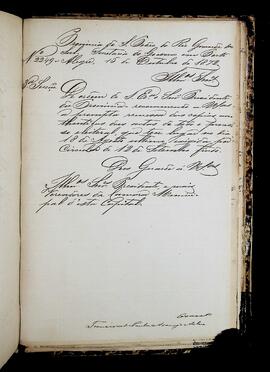 Provincia de S. Pedro do Rio Grande do
Sul, Secretaria do Governo em Porto
Nº 2249 - Alegre, 15 de Outubro de 1872.
Illmos Snrs.
De ordem de S. Exª o Snr. Presidente
da Provincia recommendo a VSas
a prompta remessa das copias au
thenticas das actas de todo o proces
so eleitoral que teve lugar no dia
18 de Agosto ultimo, exigida por
Circular de 12 de Setembro findo.
Deos Guarde a VSas
Illmos Snrs. Presidente e mais
Vereadores da Camara Munici
pal d'esta Capital.